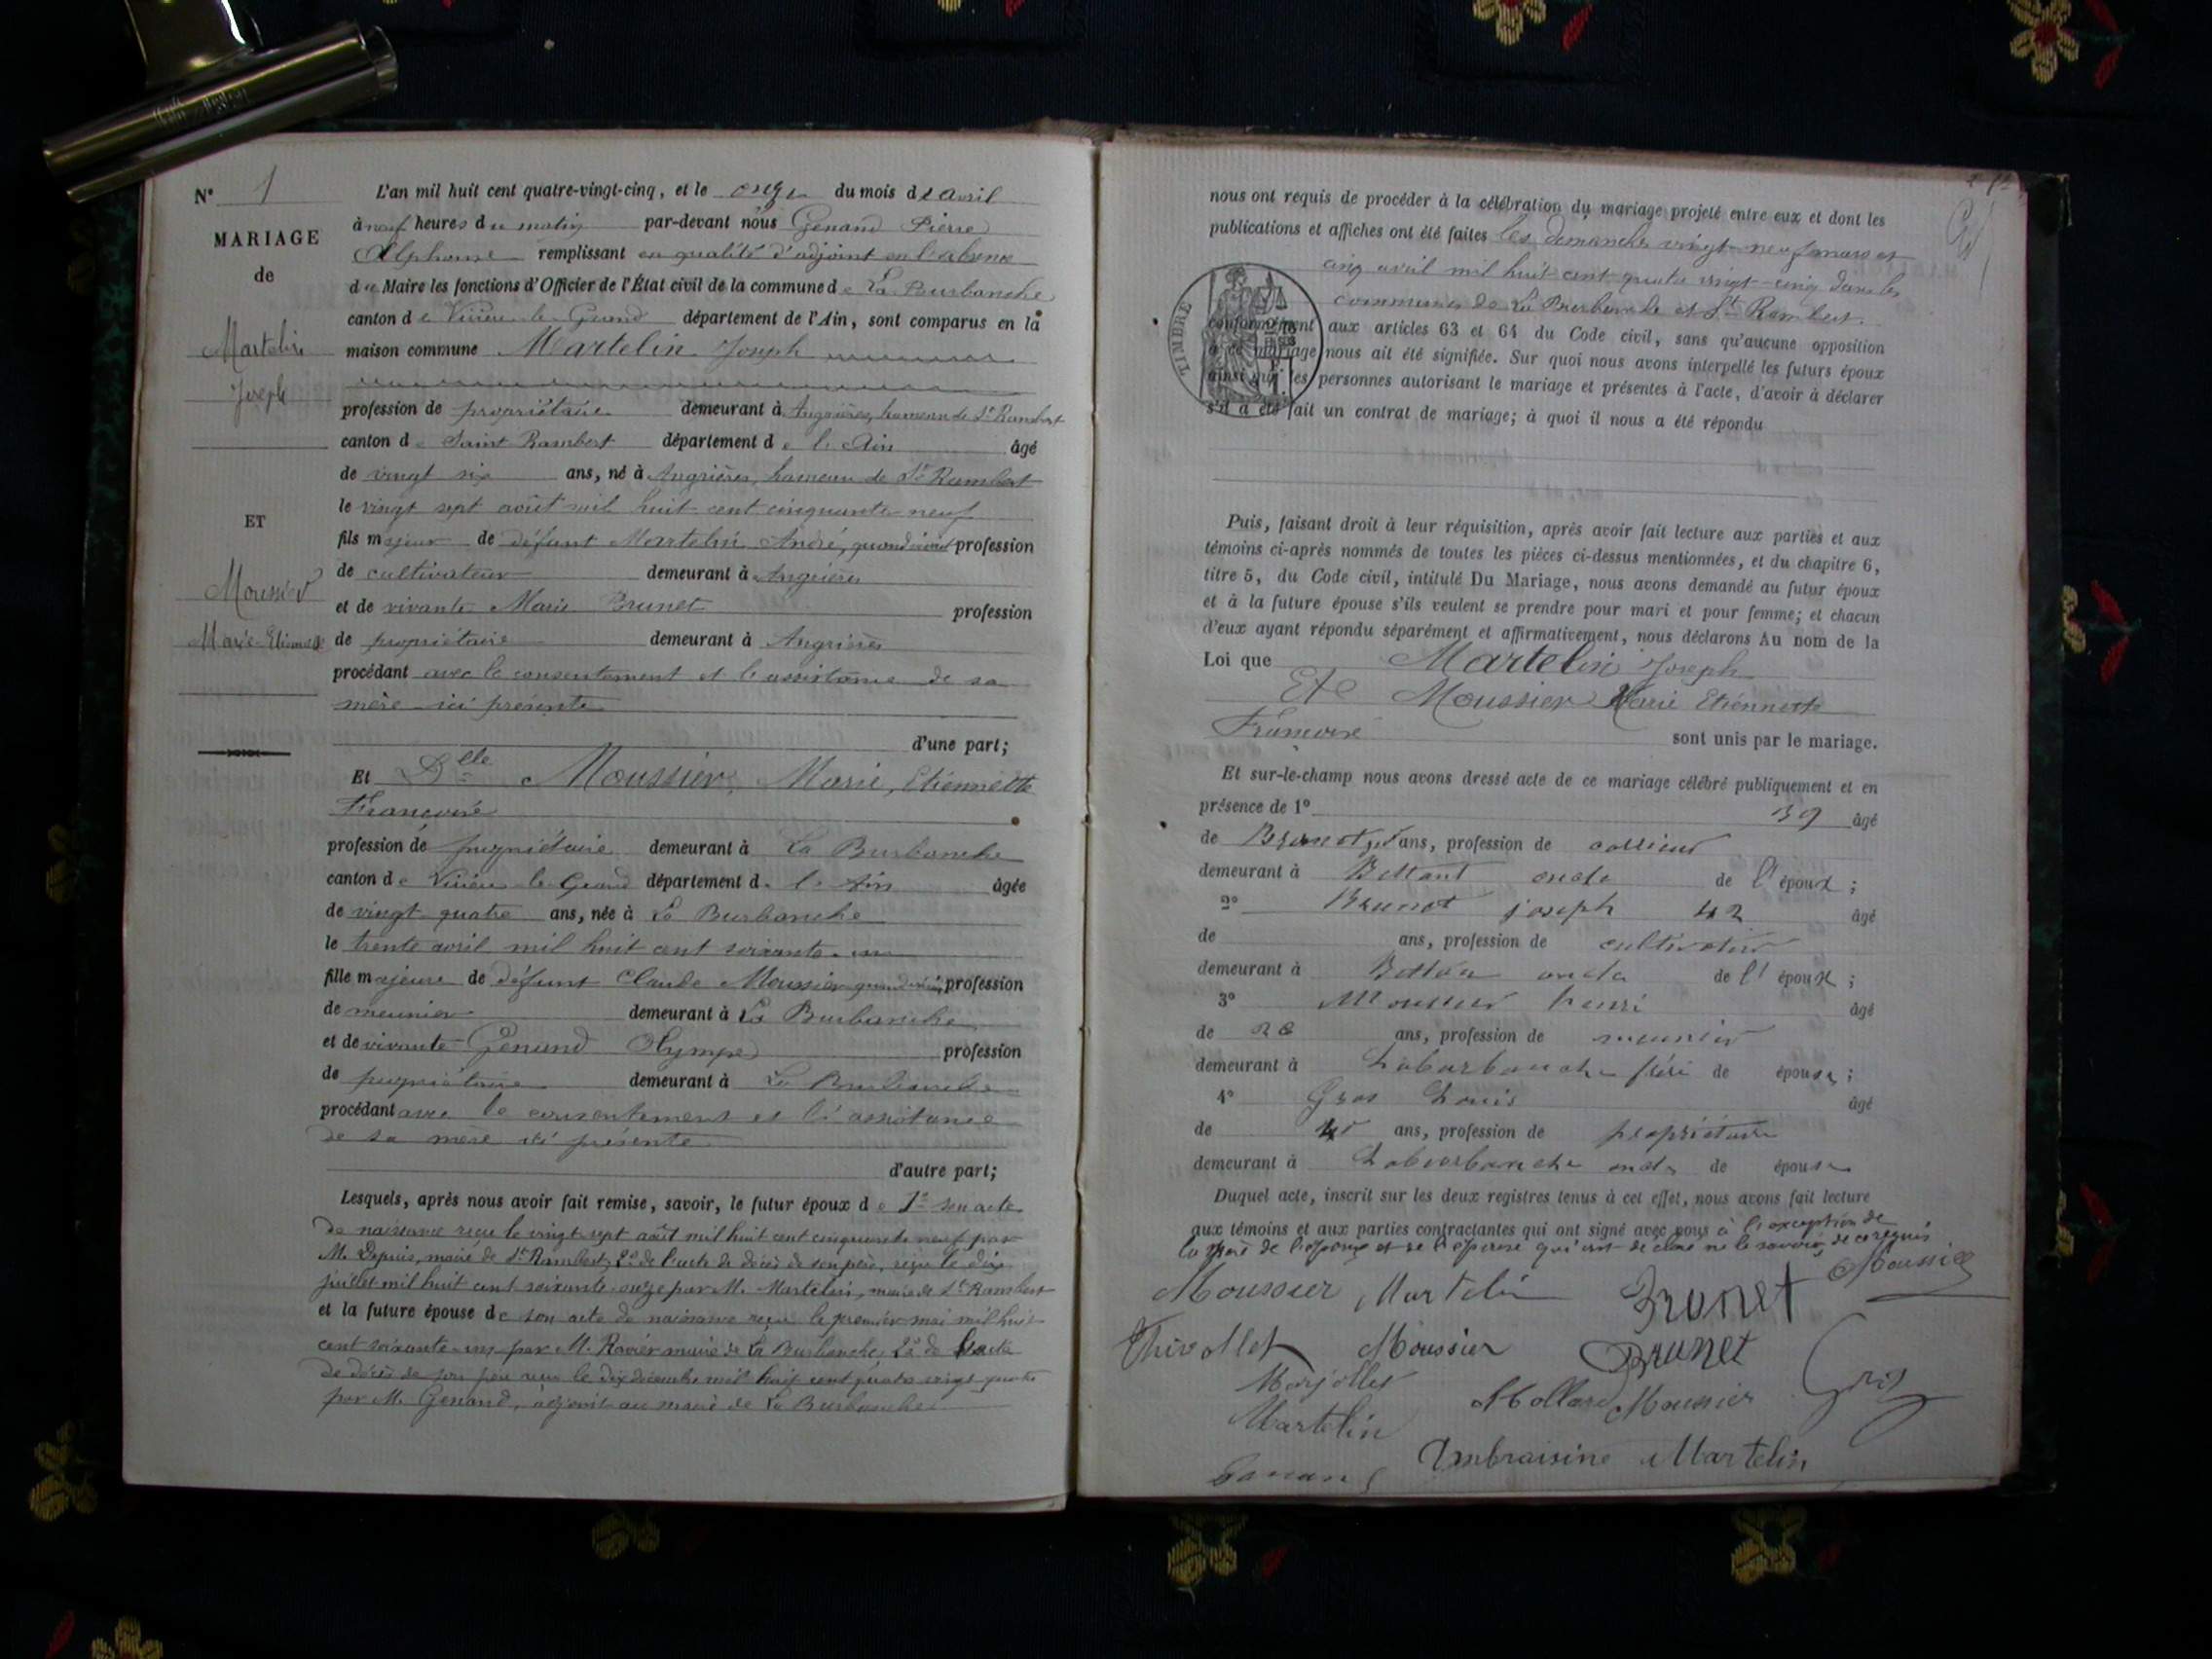 N° 1
MARIAGE
de
Martelin
Joseph
ET
Moussier
Marie-Etiennette
L'an mil huit cent quatre-vingt-cinq, et le onze du mois de avril
à neuf heures du matin par-devant nous Genand Pierre
Alphonse remplissant en qualité d'adjoint en l'absence
du Maire les fonctions d'Officier de l'État civil de la commune de La Burbanche
canton de Virieu le Grand département de l'Ain, sont comparus en la
maison commune Martelin Joseph
profession de propriétaire demeurant à Angrières, hameau de St Rambert
canton de Saint Rambert département de l'Ain âgé
de vingt six ans, né à Angrières, hameau de St Rambert
le vingt sept août mil huit cent cinquante neuf
fils majeur de défunt Martelin André, quand vivait profession
de cultivateur demeurant à Angrières
et de vivante Marie Brunet profession
de propriétaire demeurant à Angrières
procédant avec le consentement et l'assistance de sa
mère ici présente
d'une part;
Et Dlle Moussier, Marie, Etiennette
Françoise
profession de propriétaire demeurant à La Burbanche
canton de Virieu le Grand département de l'Ain âgée
de vingt quatre ans, née à La Burbanche
le trente avril mil huit cent soixante-un
fille majeure de défunt Claude Moussier quand vivait profession
de meunier demeurant à La Burbanche
et de vivante Genand Olympe profession
de propriétaire demeurant à La Burbanche
procédant avec le consentement et l'assistance
de sa mère ici présente
d'autre part;
Lesquels, après nous avoir fait remise, savoir, le futur époux de 1° son acte
de naissance reçu le vingt-sept août mil huit cent cinquante neuf par
M. Depuis, maire de St Rambert, 2° de l'acte de décès de son père, reçu le dix
juillet mil huit cent soixante onze par M. Martelin, maire de St Rambert
et la future épouse de son acte de naissance reçu le premier mai mil huit
cent soixante-un par M. Ravier maire de La Burbanche, 2° de l'acte
de décès de son père reçu le dix décembre mil huit cent quatre vingt quatre
par M. Genand, adjoint au maire de La Burbanche.
nous ont requis de procéder à la célébration du mariage projeté entre eux et dont les
publications et affiches ont été faites les dimanches vingt-neuf mars et
cinq avril mil huit cent quatre vingt-cinq dans les
communes de La Burbanche et St Rambert.
TIMBRE
conformément aux articles 63 et 64 du Code civil, sans qu'aucune opposition
à ce mariage nous ait été signifiée. Sur quoi nous avons interpellé les futurs époux
ainsi que les personnes autorisant le mariage et présentes à l'acte, d'avoir à déclarer
s'il a été fait un contrat de mariage; à quoi il nous a été répondu
Puis, faisant droit à leur réquisition, après avoir fait lecture aux parties et aux
témoins ci-après nommés de toutes les pièces ci-dessus mentionnées, et du chapitre 6,
titre 5, du Code civil, intitulé Du Mariage, nous avons demandé au futur époux
et à la future épouse s'ils veulent se prendre pour mari et pour femme; et chacun
d'eux ayant répondu séparément et affirmativement, nous déclarons Au nom de la
Loi que Martelin Joseph
Et Moussier Marie Etiennette
Françoise sont unis par le mariage.
Et sur-le-champ nous avons dressé acte de ce mariage célébré publiquement et en
présence de 1° 39 âgé
de Brunet ans, profession de
demeurant à Bettant oncle de l'époux;
2° Brunet joseph 42 âgé
de ans, profession de cultivateur
demeurant à oncle de l'époux;
3° Moussier henri âgé
de 28 ans, profession de meunier
demeurant à Laburbanche frère de épouse;
4° Gros Louis âgé
de ans, profession de propriétaire
demeurant à Laburbanche oncle de épouse
Duquel acte, inscrit sur les deux registres tenus à cet effet, nous avons fait lecture
aux témoins et aux parties contractantes qui ont signé avec nous à l'exception de
la mère de l'époux et de l'épouse qui ont déclaré ne le savoir de ce requis
Moussier Martelin Brunet Moussier
Thivollet Moussier Brunet Gros
Marjollet Mollard Moussier
Martelin
Ambraisine Martelin
Genand